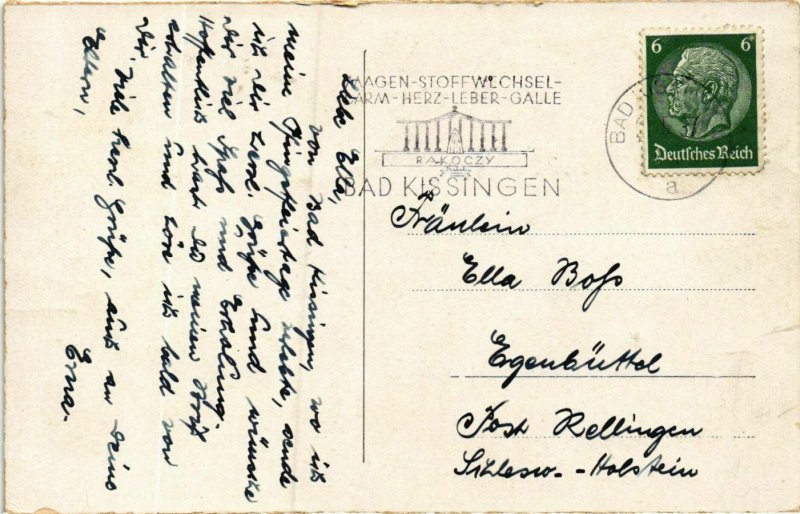 Liebe Ella,
von Bad Kissingen, wo ich
meine Pfingstfeiertage verlebte, sende
ich Dir herzl. Grüße und wünsche
Dir viel Spaß und Erholung.
Hoffentlich hast Du meinen Brief
erhalten und höre ich bald von
Dir.
Viele herzl. Grüße, auch an Deine
Eltern,
Erna.
MAGEN-STOFFWECHSEL-
DARM-HERZ-LEBER-GALLE
RAKOCZY
BAD KISSINGEN
BAD
a
6 6
Deutsches Reich
Fräulein
Ella Boss
Egenbüttel
Post Rellingen
Schlesw.-Holstein